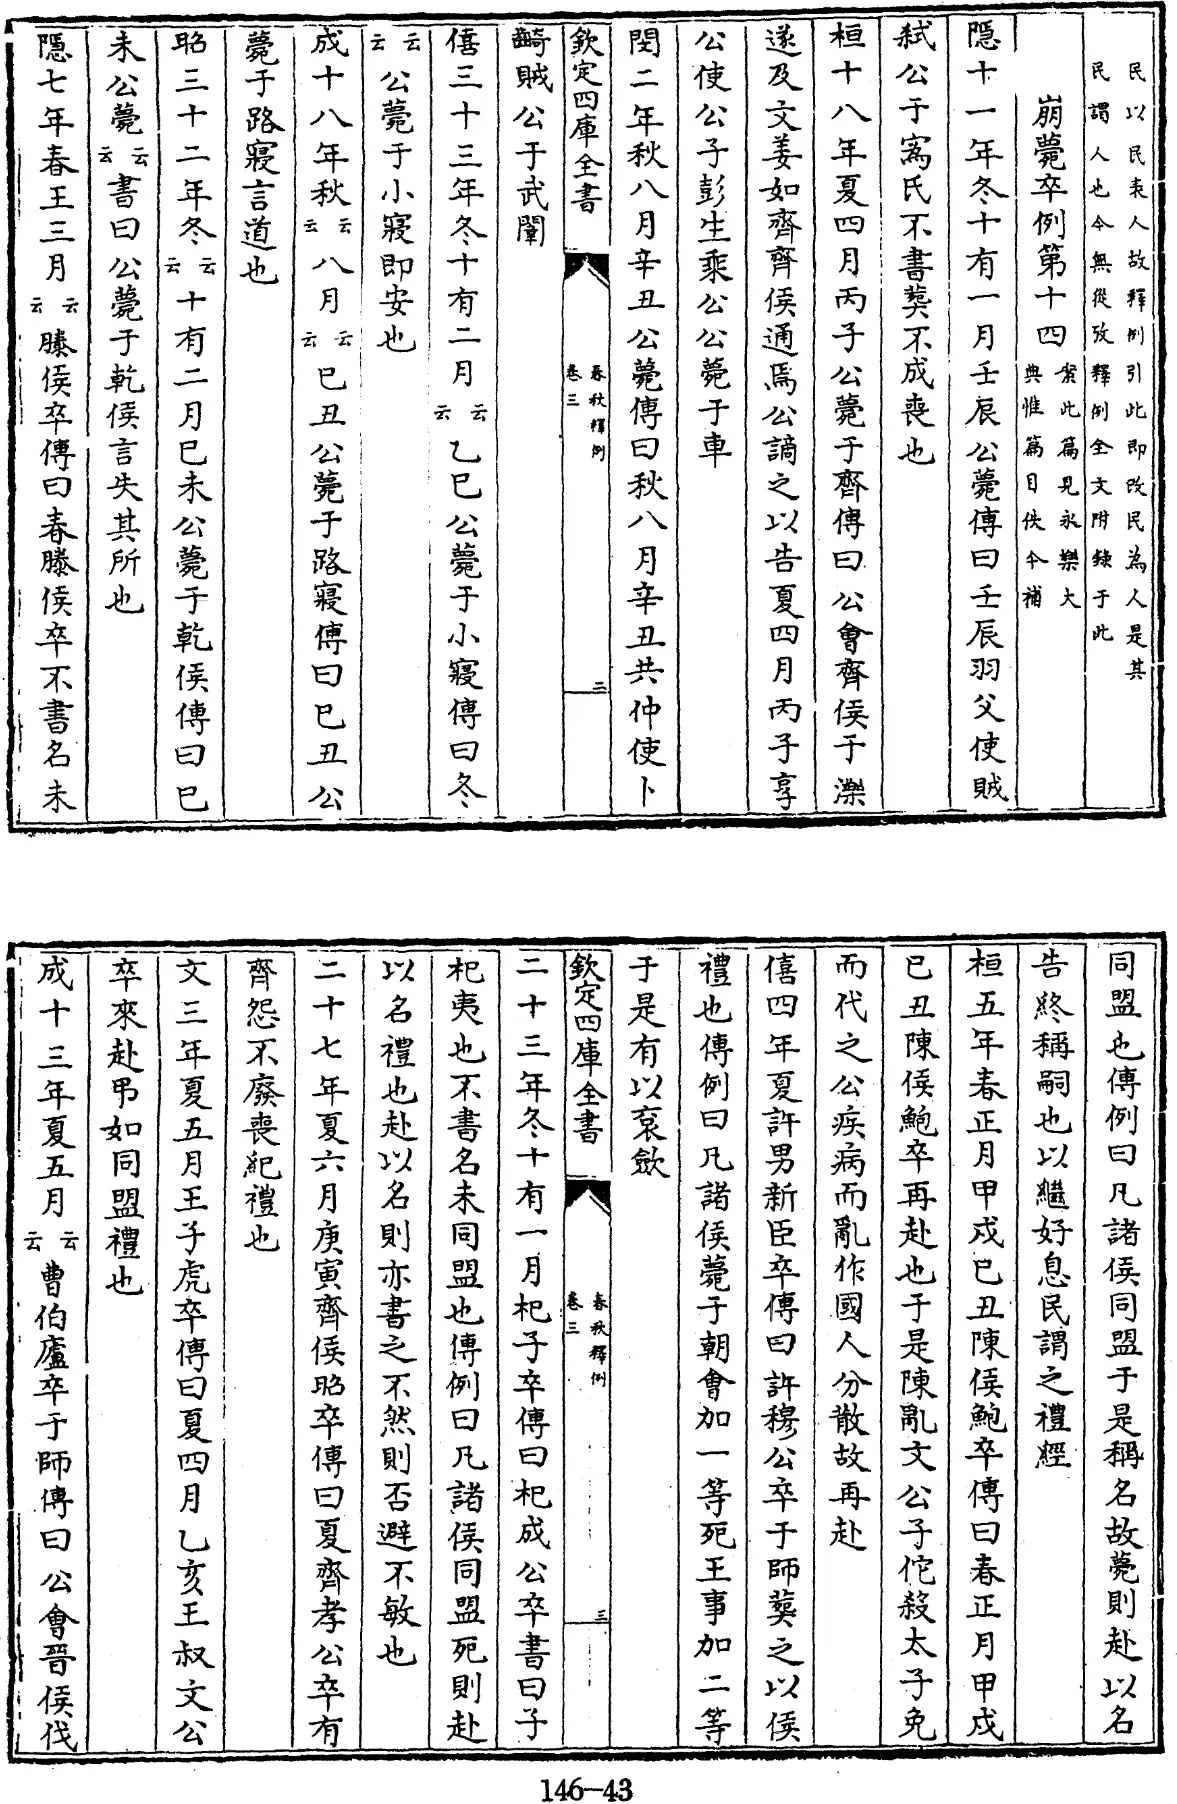 民以民表人故釋例引此即改民為人是其
民謂人也今無從攷釋例全文附錄于此
崩薨卒例第十四案此篇見永樂大
典惟篇目佚今補
隱十一年冬十有一月壬辰公薨傳曰壬辰羽父使賊
弑公于寪氏不書葬不成喪也
桓十八年夏四月丙子公薨于齊傳曰公會齊侯于濼
遂及文姜如齊齊侯通焉公謫之以告夏四月丙子享
公使公子彭生乘公公薨于車
閔二年秋八月辛丑公薨傳曰秋八月辛丑共仲使卜
欽定四庫全書
春秋釋例
卷三
二
齮賊公于武闈
僖三十三年冬十有二月云云乙巳公薨于小寢傳曰冬
云云公薨于小寢即安也
成十八年秋云云八月云云己丑公薨于路寢傳曰己丑公
薨于路寢言道也
昭三十二年冬云云十有二月己未公薨于乾侯傳曰己
未公薨云云書曰公薨于乾侯言失其所也
隱七年春王三月云云滕侯卒傳曰春滕侯卒不書名未
同盟也傳例曰凡諸侯同盟于是稱名故薨則赴以名
告終稱嗣也以繼好息民謂之禮經
桓五年春正月甲戌己丑陳侯鮑卒傳曰春正月甲戌
己丑陳侯鮑卒再赴也于是陳亂文公子佗殺太子免
而代之公疾病而亂作國人分散故再赴
僖四年夏許男新臣卒傳曰許穆公卒于師葬之以侯
禮也傳例曰凡諸侯薨于朝會加一等死王事加二等
于是有以袞斂
欽定四庫全書
春秋釋例
卷三
三
二十三年冬十有一月杞子卒傳曰杞成公卒書曰子
杞夷也不書名未同盟也傳例曰凡諸侯同盟死則赴
以名禮也赴以名則亦書之不然則否避不敏也
二十七年夏六月庚寅齊侯昭卒傳曰夏齊孝公卒有
齊怨不廢喪紀禮也
文三年夏五月王子虎卒傳曰夏四月乙亥王叔文公
卒來赴弔如同盟禮也
成十三年夏五月云云曹伯廬卒于師傳曰公會晉侯伐
146-43